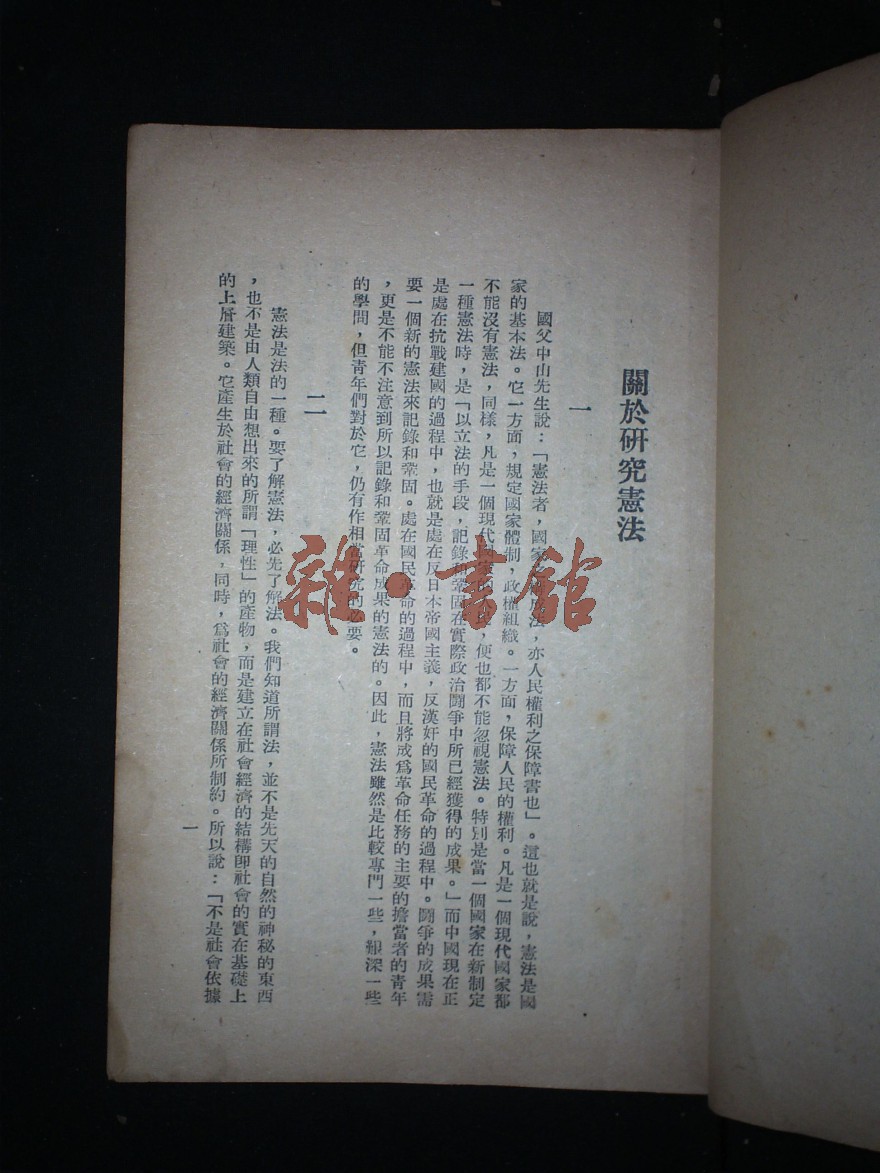 關於研究憲法
一
國父中山先生說：「憲法者，國家之構成法，亦人民權利之保障書也」。這也就是說，憲法是國
家的基本法。它一方面，規定國家體制，政權組織。一方面，保障人民的權利。凡是一個現代國家都
不能沒有憲法，同樣，凡是一個現代國家的人民，便也都不能忽視憲法。特別是當一個國家在新制定
一種憲法時，是「以立法的手段，記錄和鞏固在實際政治鬪爭中所已經獲得的成果。」而中國現在正
是處在抗戰建國的過程中，也就是處在反日本帝國主義，反漢奸的國民革命的過程中。鬪爭的成果需
要一個新的憲法來記錄和鞏固。處在國民革命的過程中，而且將成爲革命任務的主要的擔當者的青年
，更是不能不注意到所以記錄和鞏固革命成果的憲法的。因此，憲法雖然是比較專門一些，艱深一些
的學問，但青年們對於它，仍有作相當研究的必要。
二
憲法是法的一種。要了解憲法，必先了解法。我們知道所謂法，並不是先天的自然的神秘的東西
，也不是由人類自由想出來的所謂「理性」的產物，而是建立在社會經濟的結構卽社會的實在基礎上
的上層建築。它產生於社會的經濟關係，同時，爲社會的經濟關係所制約。所以說：「不是社會依據
一
雜·書館